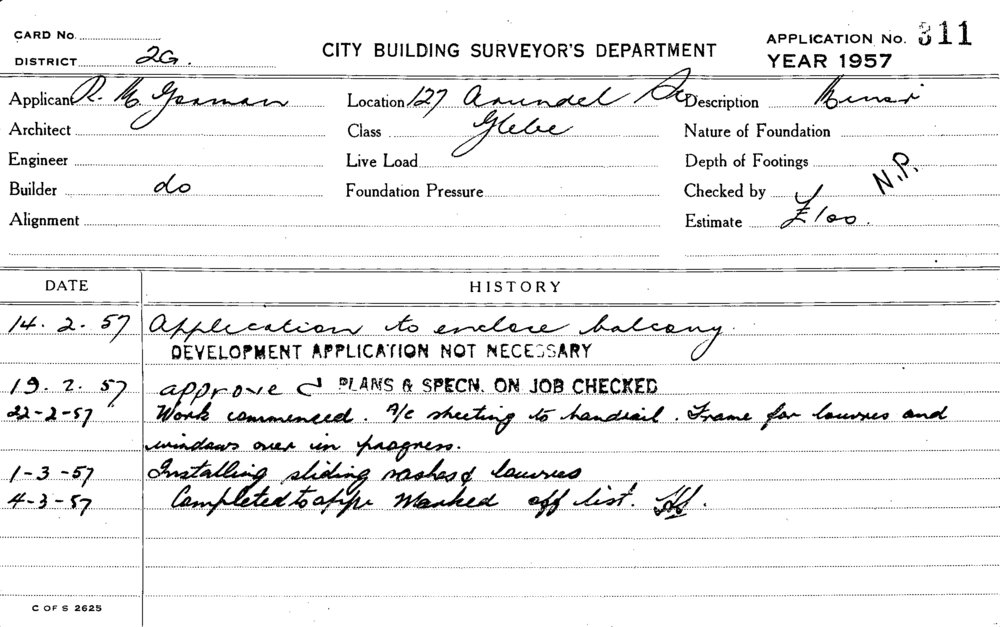 CARD No.
DISTRICT 2G.
CITY BUILDING SURVEYOR'S DEPARTMENT
APPLICATION No. 311
YEAR 1957
Applicant R. M. Gorman Location 127 Arundel St Description Minor
Architect Class Glebe Nature of Foundation
Engineer Live Load Depth of Footings N.P.
Builder do Foundation Pressure Checked by
Alignment Estimate £100.
DATE HISTORY
14.2.57 Application to enclose balcony.
DEVELOPMENT APPLICATION NOT NECESSARY
19.2.57 approved PLANS & SPECN. ON JOB CHECKED
22-2-57 Work commenced. A/c sheeting to handrail. Frame for louvres and
windows over in progress.
1-3-57 Installing sliding sashes & louvres
4-3-57 Completed to app. Marked off list.
C OF S 2625